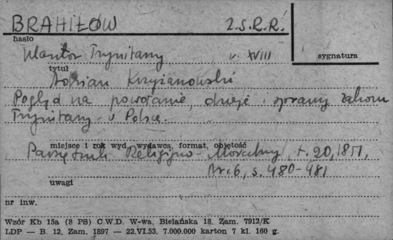 BRAHIŁOW Z.S.R.R.
hasło
Klasztor Trynitarzy w. XVIII
sygnatura
tytuł
Adrian Krzyżanowski
Pogląd na powołanie, dzieje i sprawy zakonu
Trynitarzy w Polsce.
miejsce i rok wyd., wydawca, format, objętość
Pamiętnik Religijno-Moralny, t. 20, 1851,
Nr. 6, s. 480-481
uwagi
nr inw.
Wzór Kb 15a (8 PB) C.W.D. W-wa, Bielańska 18. Zam. 7912/K
LDP — B. 12, Zam. 1897 — 22.VI.53. 7.000.000 karton 7 kl. 160 g.